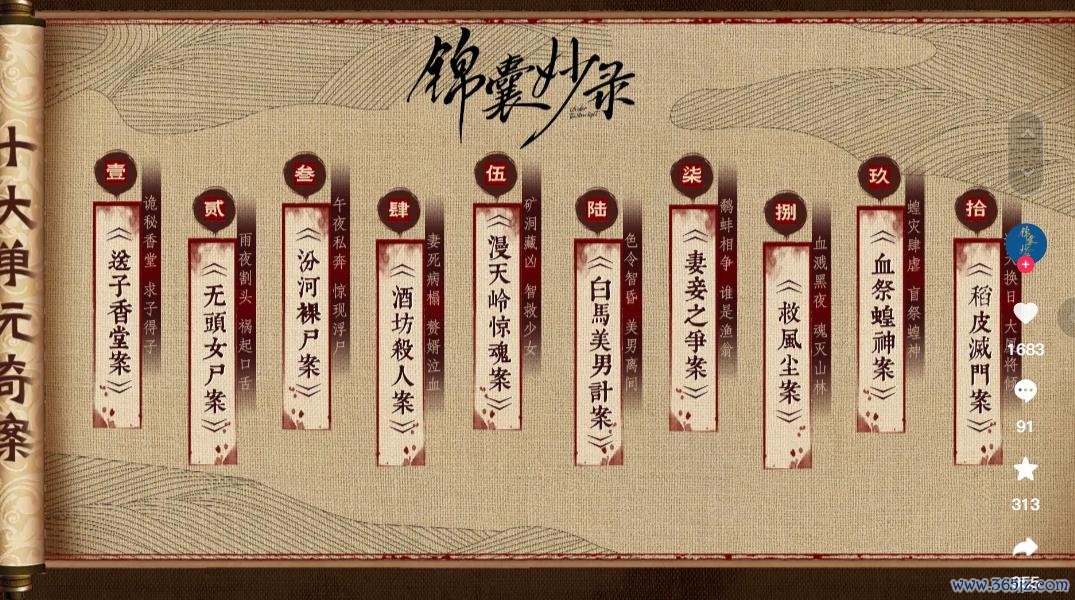 锦囊妙录
十大单元奇案
壹
《送子香堂案》
诡秘香堂 求子得子
贰
《无頭女尸案》
雨夜割头 祸起口舌
叁
《汾河裸尸案》
午夜私奔 惊现浮尸
肆
《酒坊殺人案》
妻死病榻 赘婿泣血
伍
《漫天岭惊魂案》
矿洞藏凶 智救少女
陆
《白馬美男計案》
色令智昏 美男离间
柒
《妻妾之爭案》
鹬蚌相争 谁是渔翁
捌
《救風尘案》
血溅黑夜 魂灭山林
玖
《血祭蝗神案》
蝗灾肆虐 盲祭蝗神
拾
《稻皮滅門案》
换日 大厦将倾
1683
91
313
www.365jz.com